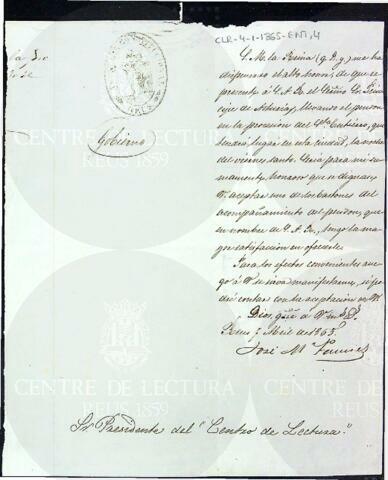 CLR-4-1-1865-ENT,4
S. M. la Reina (q. D. g.) me ha
dispensado el alto honor, de que re-
presente á S. A. R. el Sermo. Sr. Prín-
cipe de Asturias, llevando el pendon
en la procesion del Sto. Entierro, que
tendrá lugar en esta ciudad, la noche
del viernes santo. Será para mi su-
mamente honroso que se digne
V. aceptar uno de los bastones del
acompañamiento del pendon, que
en nombre de S. A. R., tengo la ma-
yor satisfaccion en ofrecerle.
Para los efectos convenientes rue-
go á V. se sirva manifestarme, si po-
dré contar con la aceptacion de V.
Dios gue. á V. ms. as.
Reus Abril de 1865.
José M.
Gobierno
REUS
Sr. Presidente del "Centro de Lectura".
CENTRE DE LECTURA
REUS 1859
CENTRE DE LECTURA
REUS 1859